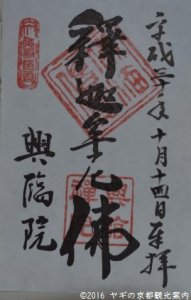 平成 十月十四日奉拝
釋迦牟尼佛
興臨院
©2016 ヤギの京都観光案内